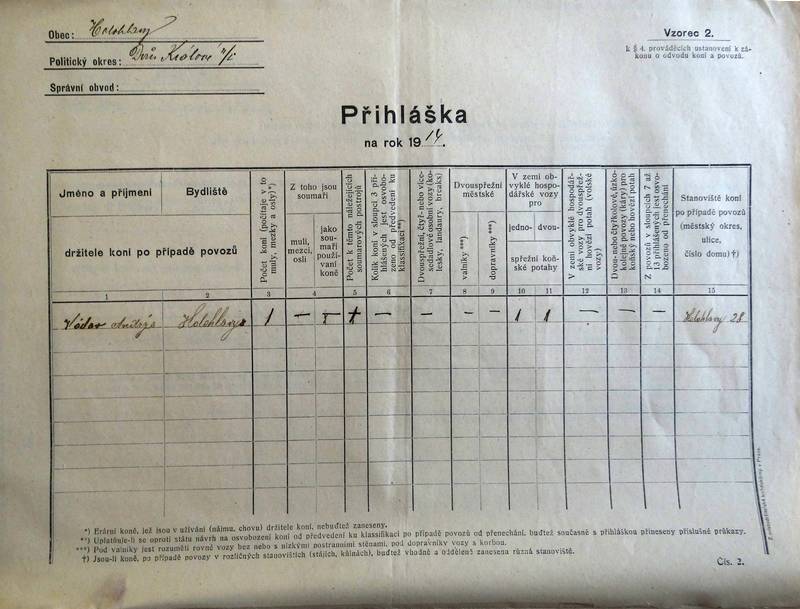 Obec: Holohlavy
Politický okres: Dvůr Králové n/L
Správní obvod:
Vzorec 2.
k § 4. prováděcích ustanovení k zá-
konu o odvodu koní a povozů.
Přihláška
na rok 1914.
Jméno a příjmení
Bydliště
držitele koní po případě povozů
Počet koní (počítaje v to
muly, mezky a osly)*)
Z toho jsou
soumaři
muli,
mezci,
osli
jako
sou-
maři
použí-
vaní
koně
Počet k těmto náležejících
soumarových postrojů
Kolik koní v sloupci 3 při-
hlášených jest osvobo-
zeno od předvedení ku
klassifikaci**)
Dvouspřežní, čtyř- nebo více-
sedadlové osobní vozy (ko-
lesky, landaury, breaks)
Dvouspřežní
městské
valníky ***)
dopravníky ***)
V zemi ob-
vyklé hospo-
dářské vozy
pro
jedno- dvou-
spřežní koň-
ské potahy
V zemi obvyklé hospodář-
ské vozy pro dvouspřež-
ní hovězí potah (volské
vozy)
Dvou- nebo čtyřkolové, úzko-
kolejné povozy (káry) pro
koňský nebo hovězí potah
Z povozů v sloupcích 7 už
13 přihlášených jest osvo-
bozeno od přenechání
Stanoviště koní
po případě povozů
(městský okres,
ulice,
číslo domu) †)
1 2 3 4 5 6 7 8 9 10 11 12 13 14 15
Holohlavy 1 — — — — — — 1 1 — — — Holohlavy 28
*) Erární koně, jež jsou v užívání (nájmu, chovu) držitele koní, nebuďtež zaneseny.
**) Uplatňuje-li se oproti státu návrh na osvobození koní od předvedení ku klassifikaci po případě povozů od přenechání, buďtež současně s přihláškou přineseny příslušné průkazy.
***) Pod valníky jest rozuměti rovné vozy bez nebo s nízkými postranními stěnami, pod dopravníky vozy s korbou.
†) Jsou-li koně, po případě povozy v rozličných stanovištích (stájích, kůlnách), buďtež vhodně a odděleně zanesena různá stanoviště.
Čís. 2.